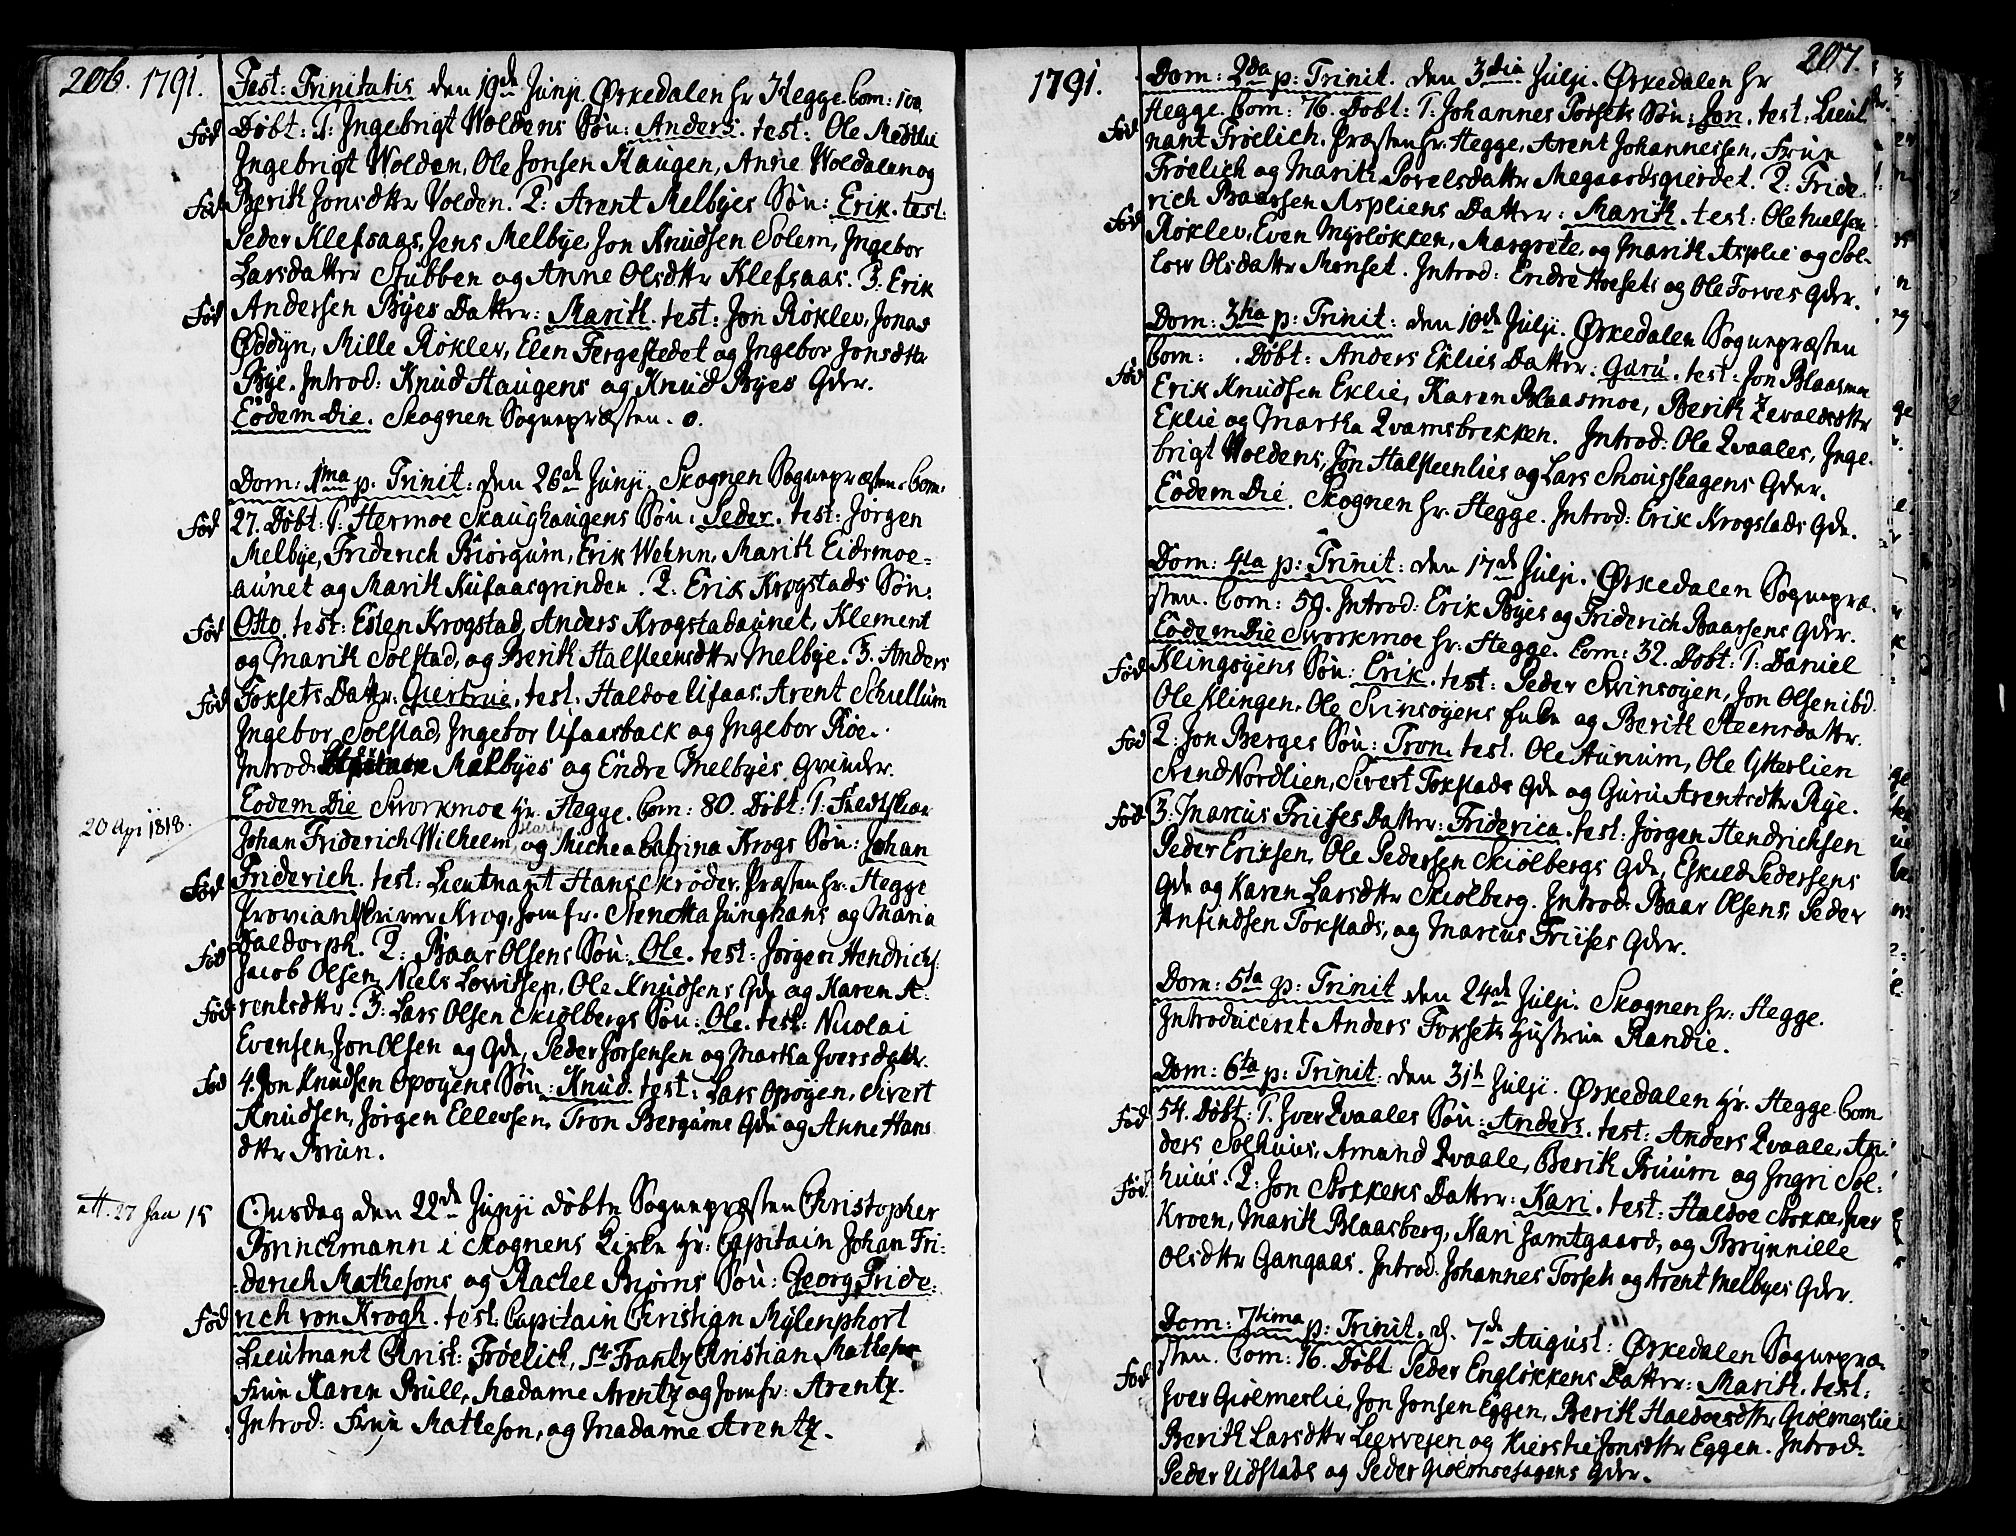 206. 1791.
Fest: Trinitatis den 19de Junji. Ørkedalen hr Hegge. Com: 100
Fød
Døbt: 1: Ingebrigt Woldens Søn: Anders. test: Ole
Ingebrigt Wolden, Ole Jonsen Haugen, Anne Woldalen og
Fød
Berith Jonsdttr Volden. 2: Arent Melbyes Søn: Erik. test:
Peder Klefsaas, Jens Melbye, Jon Knudsen Solem, Ingebor
Larsdatter Stubben og Anne Olsdttr Klefsaas. 3. Erik
Fød
Andersen Byes Datter: Marith. test: Jon Røklev, Jonas
Oddyn, Mille Røklev, Elen Fergestedet og Ingebor Jonsdttr
Bye. Introd: Knud Haugens og Knud Byes Qder.
Eodem Die. Skognen Sognepræsten. 0.
Dom: 1ma p: Trinit: den 26de Junji. Skognen Sognepræsten. Com:
Fød
27. Døbt: 1: Hermoe Skaughaugens Søn: Peder. test: Jørgen
Melbye, Friderich Biørgum, Erik Wehnn, Marith Eidsmoe-
aunet og Marith Kufaasgrinden. 2: Erik Krogstads Søn:
Fød
Otto. test: Esten Krogstad, Anders Krogstadaunet, Klement
og Marith Solstad, og Berith Halsteensdttr Melbye. 3. Anders
Fød
Foksets Dattr: Giertrue, test. Haldoe Ufaas, Arent Schullum
Ingebor Solstad, Ingebor Ufaasback og Ingebor Røe.
Introd: Melbyes og Endre Melbyes Qvinder.
Eodem Die Svorkmoe hr. Hegge. Com: 80. Døbt: 1:
20 Apr 1818.
Johan Friderich Wilhelm og Michea Catrina Krogs Søn: Johan
Fød
Friderich. test: Lieutnant Hans Skrøder, Præsten hr. Hegge
Proviantskriver Krog, Jomfr. Anetta Junghans og Maria
Fød
Daldorph. 2: Baar Olsens Søn: Ole. test: Jørgen Hendrichs
Jacob Olsen, Niels Lovissen, Ole Knudsens Qde og Karen A-
Fød
rentsdttr. 3: Lars Olsen Skiølbergs Søn: Ole. test: Nicolai
Evensen, Jon Olsen og Qde, Peder Jørsensen og Martha Iversdatter.
Fød
4. Jon Knudsen Opøyens Søn: Knud. test: Lars Opøyen, Sivert
Knudsen, Jørgen Ellevsen, Tron Bergums Qde og Anne Hans
dttr Brun.
att. 27 Jan 15
Onsdag den 22de Junji døbte Sognepræsten Christopher
Brinckmann i Skognens Kirke hr: Capitain Johan Fri-
derich Mathesons og Rachel Biørns Søn: Georg Fride-
Fød
rich von Krogh. test: Capitain Christian Mylenphort
Lieutnant Christ: Frøelich, Sr. Frantz Christian Matheson
Frue Karen Brull, Madame Arentz og Jomfr: Arentz.
Introd: Frue Matheson, og Madame Arentz.
1791.
207.
Dom: 2da p: Trinit. den 3dia Julji. Ørkedalen hr
Hegge. Com: 76. Døbt: 1: Johannes Forsets Søn: Jon. test. Lieut
Fød
nant Frøelich. Præsten hr. Hegge, Arent Johannessen, Frue
Frøelich og Marith Povelsdattr Megaardsgierdet. 2: Fride-
rich Baarsen Aspliens Datter: Marith. test: Ole Nielsen
Fød
Røklev, Even Myrløkken, Margrete, og Marith Asplie og Sol-
low Olsdattr Monset. Introd: Endre Hoesets og Ole Forves Qder.
Dom: 3tia p: Trinit: den 10de Julji. Ørkedalen Sognepræsten
Com: . Døbt: Anders Eklies Datter: Guru. test: Jon Blaasmoe
Fød
Erik Knudsen Eklie, Karen Blaasmoe, Berith Zevaldsdttr
Eklie og Martha Qvamsbrekken. Introd: Ole Qvaales, Inge-
brigt Woldens, Jon Halsteenlies og Lars Skougens Qder.
Eodem Die. Skognen hr. Hegge. Introd: Erik Krogstads Qde.
Dom: 4ta p: Trinit: den 17de Julji. Ørkedalen Sognepræ-
sten. Com: 59. Introd: Erik Byes og Friderich Baarsens Qder.
Eodem Die Svorkmoe hr: Hegge. Com: 32. Døbt: 1: Daniel
Fød
Klingøyens Søn: Erik. test: Peder Svinsøyen, Jon Olsen ibd.
Ole Klingen, Ole Svinsøyens Qvde og Berith Steensdattr.
Fød
2: Jon Berges Søn: Tron. test. Ole Aunum, Ole Ytterlien
Svend Nordlien, Sivert Fokstads Qde og Guru Arentsdttr Rye.
Fød
3. Marcus Friises Datter: Friderica. test: Jørgen Hendrichsen
Peder Eriksen, Ole Pedersen Skiølbergs Qde, Eskild Pedersens
Qde og Karen Larsdttr Skiølberg. Introd: Baar Olsens, Peder
Anfindsen Fokstads, og Marcus Friises Qder.
Dom: 5ta p: Trinit den 24de Julji. Skognen hr: Hegge.
Introduceret Anders Foksets Hustrue Randie.
Dom: 6ta p: Trinit: den 31te Julji. Ørkedalen hr. Hegge. Com
Fød
54. Døbt: 1. Iver Qvaales Søn: Anders. test: Anders Qvaale, An-
ders Solhuus, Amund Qvaale, Berith Bruum og Ingri Sol-
Fød
huus. 2: Jon Stokkens Datter: Kari. test: Haldoe Stokke, Iver
Kroen, Marith Blaasberg, Kari Jamtgaard, og Brynnille
Olsdttr Gangaas. Introd: Johannes Forsets og Arent Melbyes Qder.
Dom: 7tima p: Trinit. d. 7de August: Ørkedalen Sognepræ-
sten. Com: 76. Døbt Peder Engløkkens Datter: Marith. test:
Fød
Iver Giølmeslie, Jon Jonsen Eggen, Berith Haldoesdttr Giølmeslie
Berith Larsdttr Leervesen og Kierstie Jonsdttr Eggen. Introd:
Peder Udstads og Peder Giølmoehagens Qder.